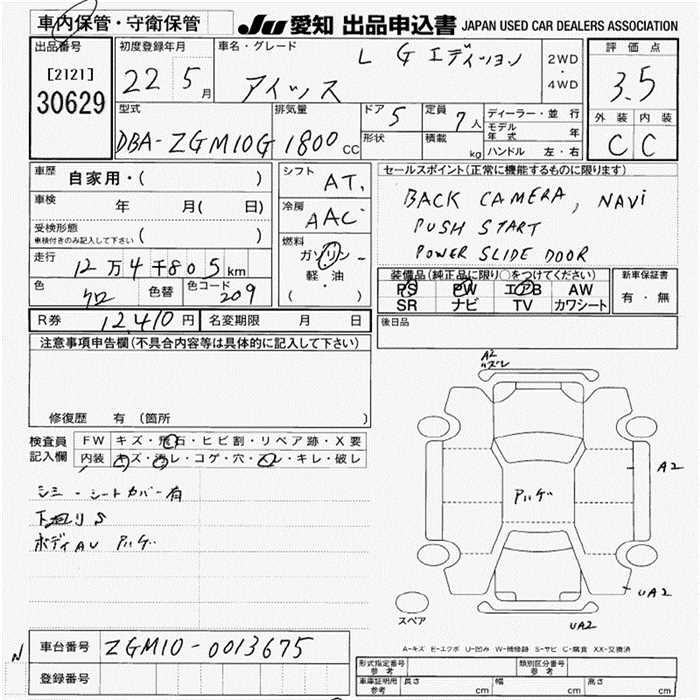 車内保管・守衛保管 JU 愛知 出品申込書 JAPAN USED CAR DEALERS ASSOCIATION
出品番号 初度登録年月 車名・グレード L G エディション 2WD・4WD 評価点
[2121] 22 5月 アイシス 3.5
30629 型式 排気量 ドア 5 定員 7人 ディーラー・並行 外装 内装
DBA-ZGM10G 1800cc 形状 積載 kg モデル年式 年 C C
ハンドル 左・右
車歴 自家用・( ) シフト AT. セールスポイント(正常に機能するものに限ります)
車検 年 月( 日) 冷房 AAC BACK CAMERA, NAVi
受検形態 ( ) PUSH START
車検付きのみ記入して下さい 燃料 ガソリン POWER SLIDE DOOR
走行 12万4千805km 軽・油 装備品(純正品に限り○をつけてください) 新車保証書
色 クロ 色替 色コード 209 ( ) PS PW エアB AW 有・無
SR ナビ TV カワシート
R券 12,410円 名変期限 月 日 後日品
注意事項申告欄(不具合内容等は具体的に記入して下さい)
A2
修復歴 有 (箇所 )
検査員 FW キズ・飛石・ヒビ割・リペア跡・X要
記入欄 内装 キズ・汚レ・コゲ・穴・スレ・キレ・破レ
A2
シミ・シートカバー有 アハゲ
下廻りS
ボディAU アハゲ
UA2
スペア
UA2
N 車台番号 ZGM10-0013675 A-キズ E-エクボ U-凹み W-補修跡 S-サビ C-腐食 XX-交換済
登録番号 型式指定番号 参考 類別区分番号 参考
車庫証明用 参考 長さ cm 幅 cm 高さ cm